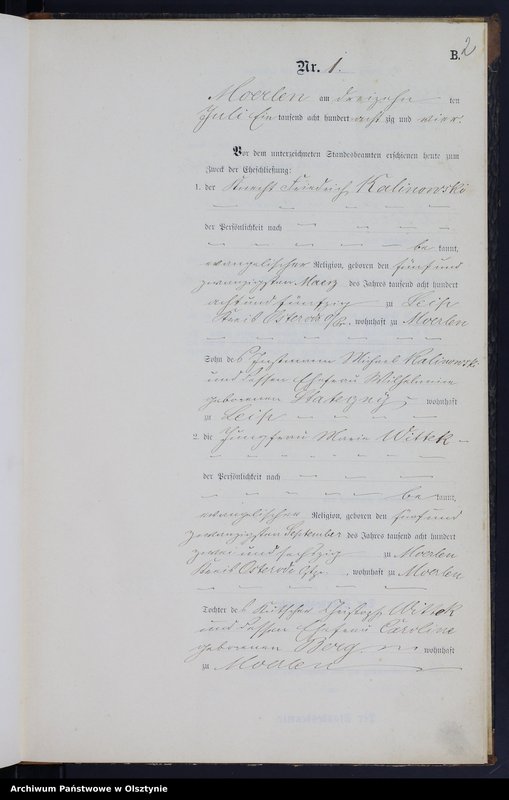 B. 2
Nr. 1.
Moerlen am dreizehn ten
Juli Ein tausend acht hundert achtzig und vier.
Vor dem unterzeichneten Standesbeamten erschienen heute zum
Zweck der Eheschließung:
1. der Knecht Friedrich Kalinowski
der Persönlichkeit nach
be kannt,
evangelischer Religion, geboren den fünfund
zwanzigsten Maerz des Jahres tausend acht hundert
achtundfünfzig zu Leip
Kreis Osterode O/Pr., wohnhaft zu Moerlen
Sohn des Instmann Michael Kalinowski
und dessen Ehefrau Wilhelmine
geborenen wohnhaft
zu Leip
2. die Jungfrau Marie Wittek
der Persönlichkeit nach
be kannt,
evangelischer Religion, geboren den fünfund
zwanzigsten September des Jahres tausend acht hundert
zweiundsechszig zu Moerlen
Kreis Osterode , wohnhaft zu Moerlen
Tochter des Kutscher Christoph Wittek
und dessen Ehefrau Caroline
geborenen Berg wohnhaft
zu Moerlen
Archiwum Państwowe w Olsztynie